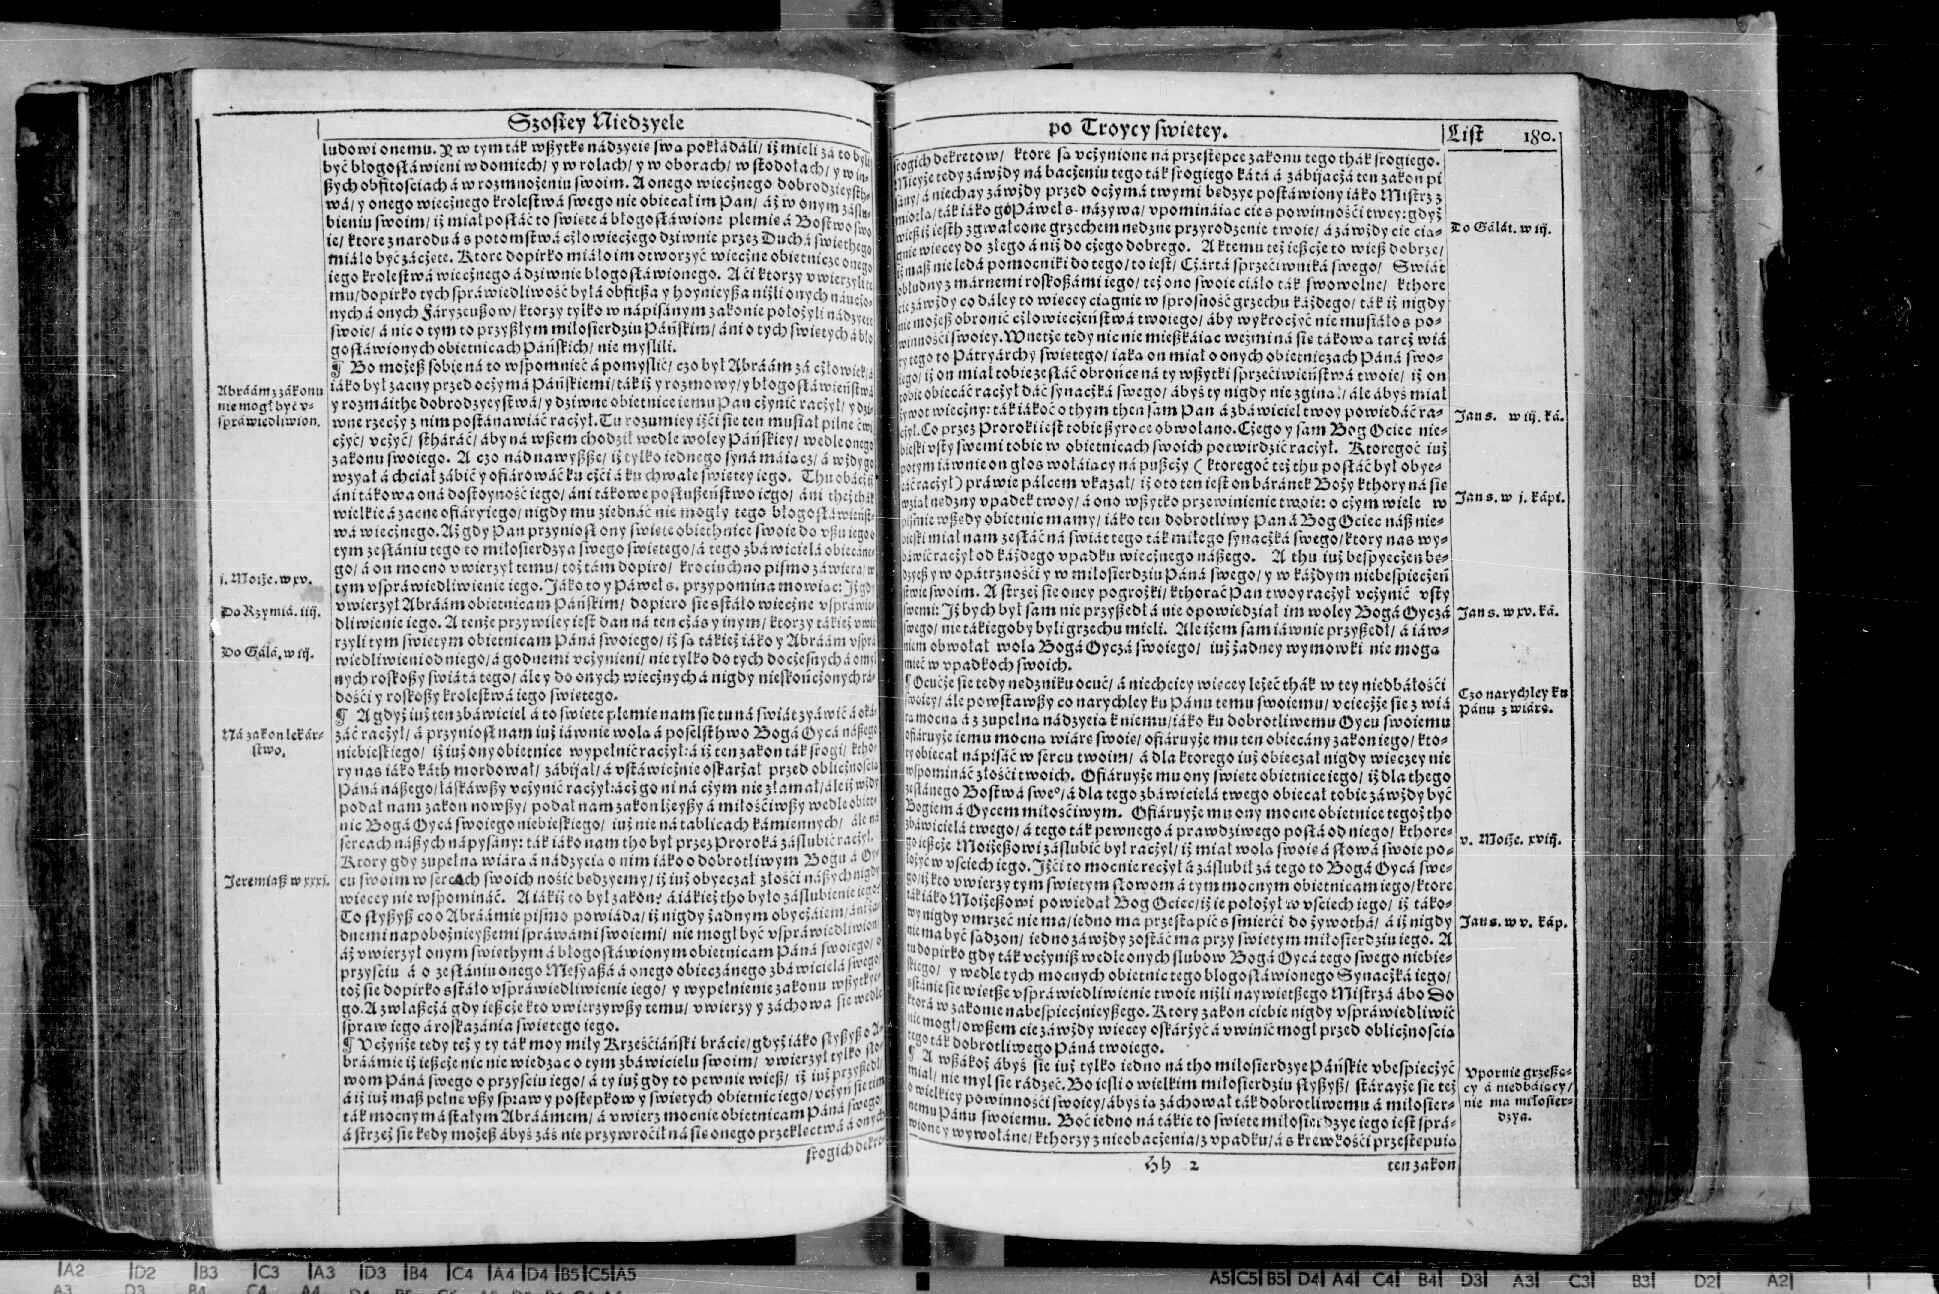 Szostey Niedzyele
ludowi onemu. Y w tym ták wßytkę nádzyeie swą pokłádáli/ iż mieli zá to byli
być błogosłáwieni w domiech/ y w rolach/ y w oborach/ w stodołach/ y w in-
ßych obfitościach á w rozmnożeniu swoim. A onego wiecżnego dobrodzieysth-
wá/ y onego wiecżnego krolestwá swego nie obiecał im Pan/ áż w onym záslu-
bieniu swoim/ iż miał posłáć to swięte á błogosłáwione plemię á Bostwo swo
ie/ ktore z narodu á s potomstwá cżłowiecżego dziwnie przez Duchá swiethego
miáło być zácżęte. Ktore dopirko miáło im otworzyć wiecżne obietnicze onego
iego krolestwá wiecżnego á dziwnie błogosłáwionego. A ći ktorzy vwierzyli te
mu/ dopirko tych spráwiedliwość byłá obfitßa y hoynieyßa niżli onych náucżo-
nych á onych Fáryzeußow/ ktorzy tylko w nápisánym zakonie położyli nádzyeię
swoię/ á nic o tym to przyßłym miłosierdziu Páńskim/ áni o tych swiętych á bło
gosłáwionych obietnicach Páńskich/ nie myslili.
¶ Bo możeß sobie ná to wspomnieć á pomyslić/ czo był Abráám zá cżłowiek/ á
iáko był zacny przed ocżymá Páńskiemi/ ták iż y rozmowy/ y błogosłáwieństwá
y rozmáithe dobrodzyeystwá/ y dziwne obietnice iemu Pan cżynić racżył/ y dzi-
wne rzecży z nim postánáwiáć racżył. Tu rozumiey iżći sie ten musiał pilne ćwi
cżyć/ vcżyć/ stháráć/ áby ná wßem chodził wedle woley Páńskiey/ wedle onego
zakonu swoiego. A czo nád nawyßße/ iż tylko iednego syná máiącz/ á wżdy go
wzyął á chciał zábić y ofiárowáć ku cżći á ku chwale swiętey iego. Thu obácż iż
áni tákowa oná dostoyność iego/ áni tákowe posłußeństwo iego/ áni theż thák
wielkie á zacne ofiáry iego/ nigdy mu ziednáć nie mogły tego błogosłáwieńst-
wá wiecżnego. Aż gdy Pan przyniosł ony swięte obiethnice swoie do vßu iego o
tym zesłániu tego to miłosierdzya swego swiętego/ á tego zbáwicielá obiecáne-
go/ á on mocno vwierzył temu/ toż tám dopiro/ krociuchno pismo záwiera/ w
tym vspráwiedliwienie iego. Jáko to y Páweł s. przypomina mowiąc: Jż gdy
vwierzył Abráám obietnicam Páńskim/ dopiero sie sstáło wiecżne vspráwie-
dliwienie iego. A tenże przywiley iest dan ná ten cżás y inym/ ktorzy tákież vwie
rzyli tym swiętym obietnicam Páná swoiego/ iż są tákież iáko y Abráám vsprá
wiedliwieni od niego/ á godnemi vcżynieni/ nie tylko do tych docżesnych á omyl
nych roskoßy swiátá tego/ ále y do onych wiecżnych á nigdy nieskońcżonych rá-
dości y roskoßy krolestwá iego swiętego.
¶ A gdyż iuż ten zbáwiciel á to swięte plemię nam sie tu ná swiát zyáwić á oká-
záć racżył/ á przyniosł nam iuż iáwnie wolą á poselsthwo Bogá Oycá nászego
niebieskiego/ iż iuż ony obietnice wypełnić racżył: á iż ten zakon ták srogi/ ktho-
ry nas iáko káth mordował/ zábijał/ á vstáwicżnie oskárżał przed oblicżnością
Páná nászego/ łáskáwßy vcżynić racżył: ácż go ni ná cżym nie złamał/ ále iż wżdy
podał nam zakon nowßy/ podał nam zakon lżeyßy á miłościwßy wedle obiet-
nic Bogá Oycá swoiego niebieskiego/ iuż nie ná tablicach kámiennych/ ále ná
sercach nászych nápysány: ták iáko nam tho był przez Proroká záslubić racżył.
Ktory gdy zupełną wiárą á nádzyeią o nim iáko o dobrotliwym Bogu á Oy-
cu swoim w sercach swoich nośić będzyemy/ iż iuż obyeczał złości nászych nigdy
więcey nie wspomináć. A iákiż to był zakon? á iákież tho było záslubienie iego?
To słyßyß co o Abráámie pismo powiáda/ iż nigdy żadnym obyczáiem/ áni żá-
dnemi napobożnieyßemi spráwámi swoiemi/ nie mogł być vspráwiedliwion/
áż vwierzył onym swiethym á błogosłáwionym obietnicam Páná swoiego/ o
przyściu á o zesłániu onego Mesyaßá á onego obiecżánego zbáwicielá swego
toż sie dopirko sstáło vsprawiedliwienie iego/ y wypełnienie zakonu wßytkie-
go. A zwłaßcżá gdy ieszcże kto vwierzywßy temu/ vwierzy y záchowa sie wedle
spraw iego á roskazánia swiętego iego.
¶ Vcżyńże tedy też y ty ták moy miły Krześćiáński brácie/ gdyż iáko słyßyß o A-
bráámie iż ießcże nic nie wiedząc o tym zbáwicielu swoim/ vwierzył tylko sło-
wom Páná swego o przysciu iego/ á ty iuż gdy to pewnie wieß/ iż iuż przyßedł
á iż iuż maß pełne vßy spraw y postępkow y swiętych obietnic iego/ vcżyń sie tim
ták mocnym á stałym Abráámem/ á vwierz mocnie obietnicam Páná swego/
á strzeż sie kedy możeß ábyś zás nie przywrocił ná się onego przeklęctwá á onych
srogich dekre-
Abráám z zakonu
nie mogł być v-
spráwiedliwion.
j. Moiże. w xv.
Do Rzymiá. iiij.
Do Gálá. w iij.
Ná zakon lekár-
stwo.
Jeremiaß w xxxj.
po Troycy swiętey.
List 180.
srogich dekretow/ ktore są vcżynione ná przestępce zakonu tego thák srogiego.
Mieyże tedy záwżdy ná bacżeniu tego ták srogiego kátá á zábijacżá ten zakon pi
sány/ á niechay záwżdy przed ocżymá twymi będzye postáwiony iáko Mistrz z
miotłą/ ták iáko go Páweł s. názywa/ vpomináiąc cie s powinności twey: gdyż
wieß iż iesth zgwałcone grzechem nędzne przyrodzenie twoie/ á záwżdy cie cią-
gnie więcey do złego á niż do cżego dobrego. A ktemu też ießcże to wieß dobrze/
iż maß nie ledá pomocniki do tego/ to iest/ Cżártá sprzeciwniká swego/ Swiát
obłudny z márnemi roskoßámi iego/ też ono swoie ciáło ták swowolne/ kthore
cie záwżdy co dáley to więcey ciągnie w sprosność grzechu każdego/ ták iż nigdy
nie możeß obronić cżłowiecżeństwá twoiego/ áby wykrocżyć nie musiáło s po-
winności swoiey. Wnetże tedy nic nie mießkáiąc weźmi ná się tákową tarcż wiá
ry tego to Pátryárchy swiętego/ iaką on miał o onych obietniczach Páná swo-
iego/ iż on miał tobie zesłáć obrońce ná ty wßytki sprzeciwieństwá twoie/ iż on
tobie obiecáć racżył dáć synacżká swego/ ábyś ty nigdy nie zginął/ ále ábyś miał
żywot wiecżny: ták iákoć o thym then sam Pan á zbáwiciel twoy powiedáć ra-
cżył. Co przez Proroki iest tobie ßyroce obwołano. Cżego y sam Bog Ociec nie-
bieski vsty swemi tobie w obietnicach swoich potwirdzić racżył. Ktoregoć iuż
potym iáwnie on głos wołáiący ná pußcży ( ktoregoć też thu posłáć był obye-
cáć racżył) práwie pálcem vkazał/ iż oto ten iest on báránek Boży kthory ná się
wziął nędzny vpadek twoy/ á ono wßytko przewinienie twoie: o cżym wiele w
piśmie wßędy obietnic mamy/ iáko ten dobrotliwy Pan á Bog Ociec náß nie-
bieski miał nam zesłáć ná swiát tego ták miłego synacżká swego/ ktory nas wy-
báwić racżył od każdego vpadku wiecżnego nászego. A thu iuż bespyecżen bę-
dzyeß y w opátrzności y w miłosierdziu Páná swego/ y w każdym niebespiecżeń
stwie swoim. A strzeż sie oney pogrożki/ kthorąć Pan twoy racżył vcżynić vsty
swemi: Jż bych był sam nie przyßedł á nie opowiedział im woley Bogá Oyczá
swego/ nie tákiegoby byli grzechu mieli. Ale iżem sam iáwnie przyßedł/ á iáw-
niem obwołał wolą Bogá Oyczá swoiego/ iuż żadney wymowki nie mogą
mieć w vpadkoch swoich.
¶ Ocucże sie tedy nędzniku ocuć/ á niechciey więcey leżeć thák w tey niedbáłości
swoiey/ ále powstawßy co narychley ku Pánu temu swoiemu/ vciecżże sie z wiá
rą mocną á z zupełną nádzyeią k niemu/ iáko ku dobrotliwemu Oycu swoiemu
ofiáruyże iemu mocną wiárę swoię/ ofiáruyże mu ten obiecány zakon iego/ kto-
ry obiecał nápisáć w sercu twoim/ á dla ktorego iuż obieczał nigdy więczey nie
wspomináć złości twoich. Ofiáruyże mu ony swięte obietnice iego/ iż dla thego
zesłánego Bostwá swe°/ á dla tego zbáwicielá twego obiecał tobie záwżdy być
Bogiem á Oycem miłościwym. Ofiáruyże mu ony mocne obietnice tegoż tho
zbáwicielá twego/ á tego ták pewnego á prawdziwego posłá od niego/ kthore-
go ießcże Moiżeßowi záslubić był racżył/ iż miał wolą swoię á słowá swoie po-
łożyć w vsciech iego. Jżći to mocnie rzecżył á záslubił zá tego to Bogá Oycá swe-
go/ iż kto vwierzy tym swiętym słowom á tym mocnym obietnicam iego/ ktore
ták iáko Moiżeßowi powiedał Bog Ociec/ iż ie położył w vsciech iego/ iż táko-
wy nigdy vmrzeć nie ma/ iedno ma przestąpić s śmierći do żywothá/ á iż nigdy
nie ma być sądzon/ iedno záwżdy zostáć ma przy swiętym miłosierdziu iego. A
tu dopirko gdy ták vcżyniß wedle onych slubow Bogá Oycá tego swego niebie-
skiego/ y wedle tych mocnych obietnic tego błogosłáwionego Synacżká iego/
sstánie sie więtße vspráwiedliwienie twoie niżli naywiętßego Mistrzá ábo Do
ktorá w zakonie nabespiecżnieyßego. Ktory zakon ciebie nigdy vspráwiedliwić
nie mogł/ owßem cie záwżdy więcey oskárżyć á vwinić mogł przed oblicżnością
tego ták dobrotliwego Páná twoiego.
¶ A wßákoż ábyś sie iuż tylko iedno ná tho miłosierdzye Páńskie vbespiecżyć
miał/ nie myl sie rádzęć. Bo iesli o wielkim miłosierdziu słyßyß/ stárayże sie też
o wielkiey powinności swoiey/ ábyś ią záchował ták dobrotliwemu á miłosier-
nemu Pánu swoiemu. Boć iedno ná tákie to swięte miłosierdzye iego iest sprá-
wione y wywołáne/ kthorzy z nieobacżenia/ z vpadku/ á s krewkości przestępuią
Hh 2
ten zakon
Do Gálát. w iij.
Jan s. w iij. ká.
Jan s. w j. kápi.
Jan s. w xv. ká.
Czo narychley ku
Pánu z wiárą.
v. Moiże. xviij.
Jan s. w v. káp.
Vpornie grzeßą-
cy á niedbáiący/
nie ma miłosier-
dzya.